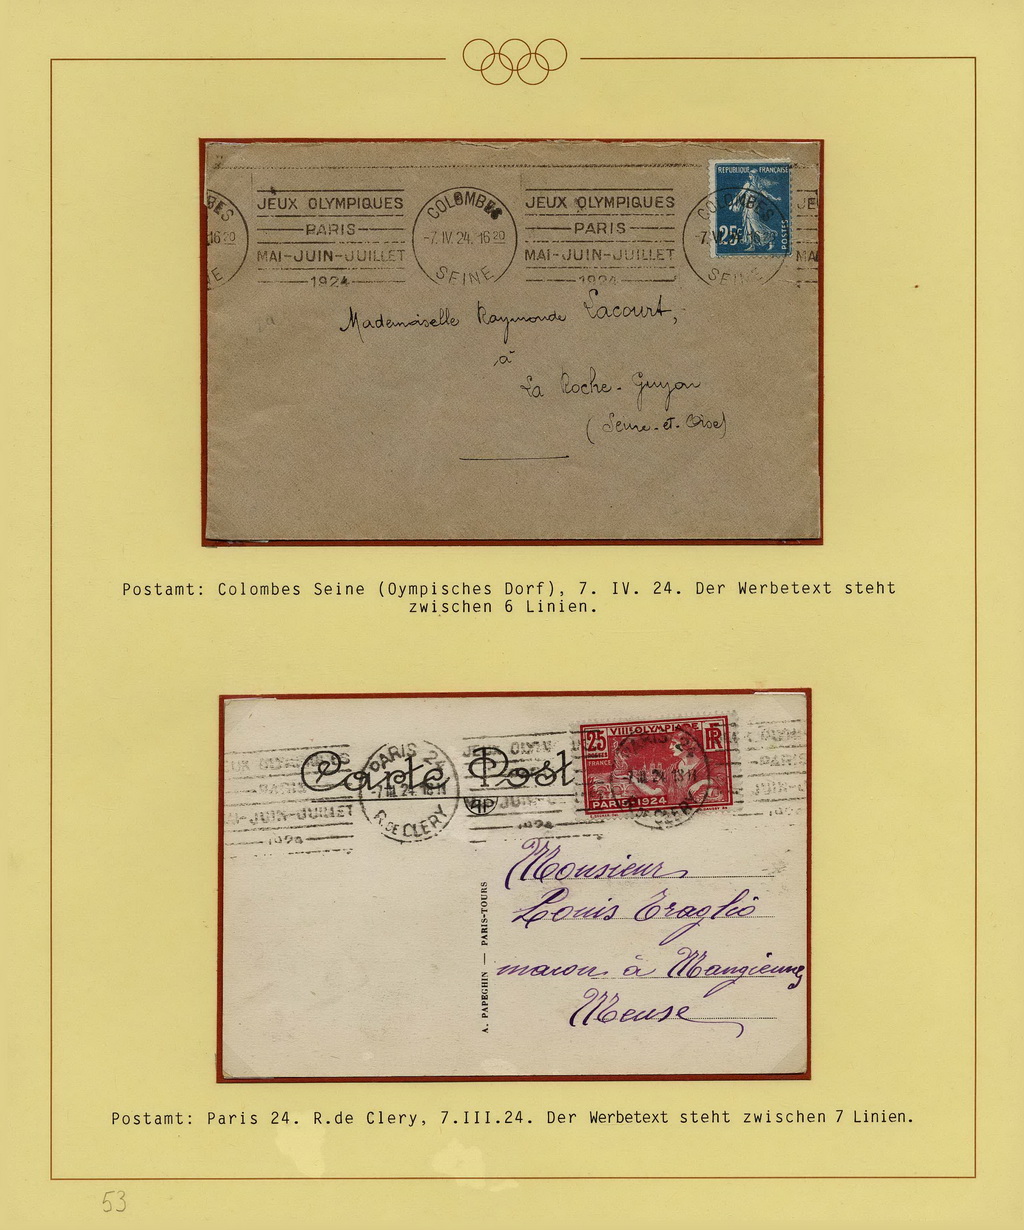 BES
16 20
E
JEUX OLYMPIQUES
PARIS
MAI-JUIN-JUILLET
1924
COLOMBES
-7. IV. 24. 16 20
SEINE
JEUX OLYMPIQUES
PARIS
MAI-JUIN-JUILLET
1924
COLOMBES
SEINE
REPUBLIQUE FRANÇAISE
25c
POSTES
JE
MA
Mademoiselle Raymonde Lacourt,
à
La Roche-Guyon
(Seine-et-Oise)
Postamt: Colombes Seine (Oympisches Dorf), 7. IV. 24. Der Werbetext steht
zwischen 6 Linien.
PARIS
I-JUIN-JUILLET
1924
PARIS 24
7 III 24 18 H
R. DE CLERY
Carte Post
JEUX OLYM
JUIN-
1924
VIIIe OLYMPIADE
25
FRANCE
RF
PARIS-1924
A. PAPEGHIN — PARIS-TOURS
Monsieur
Louis
maçon à Mangiennes
Meuse
Postamt: Paris 24. R.de Clery, 7.III.24. Der Werbetext steht zwischen 7 Linien.
53